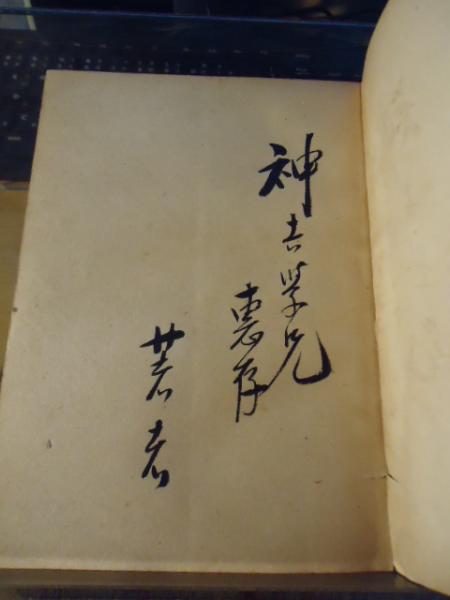 神吉学兄
恵存
著者